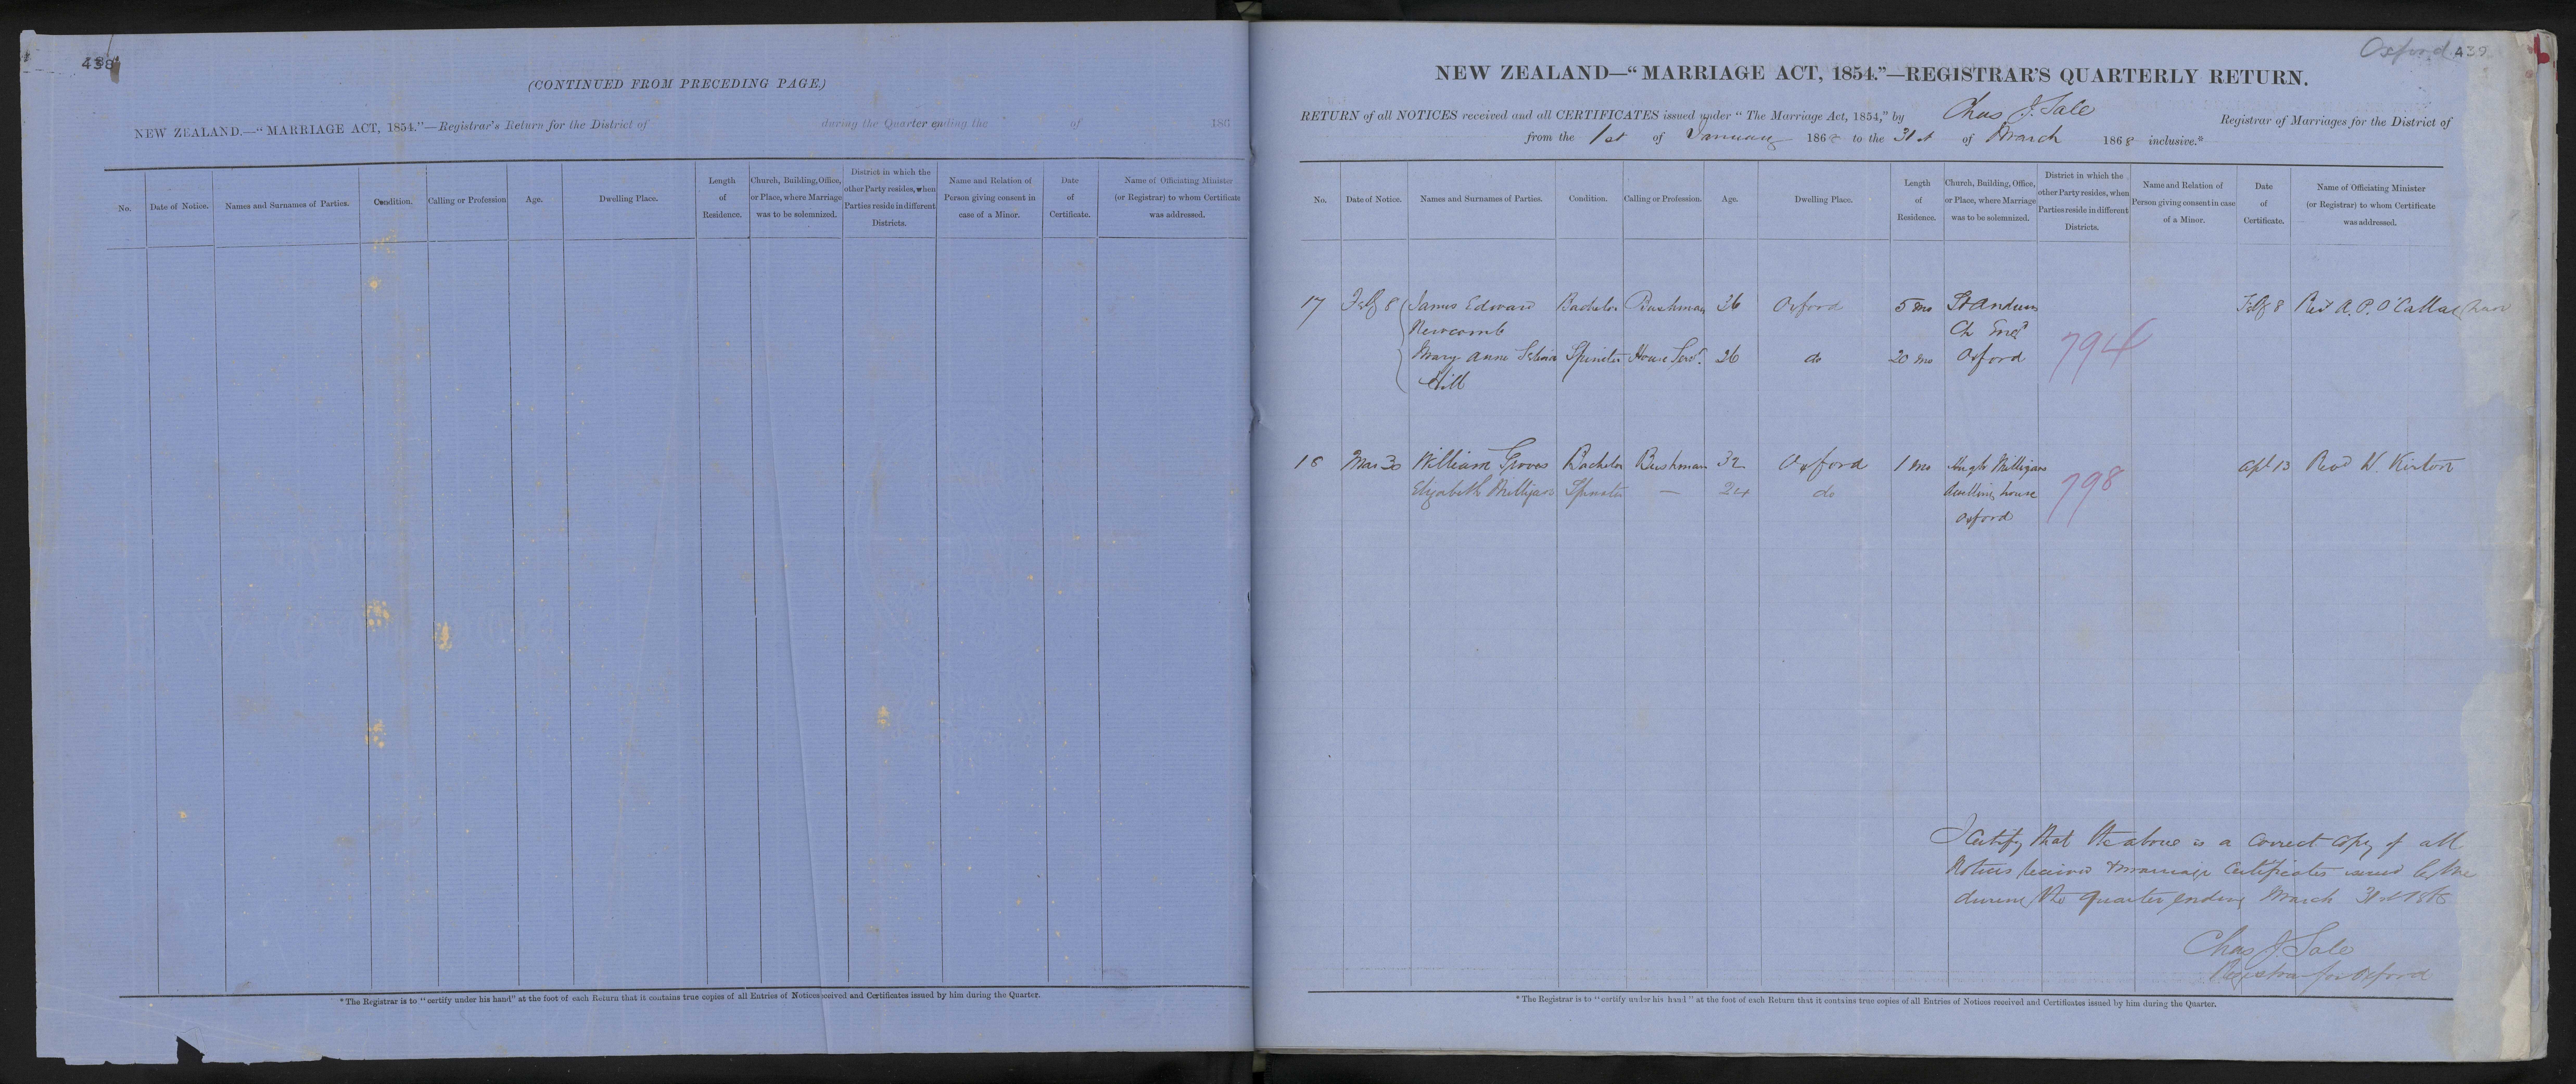 438
(CONTINUED FROM PRECEDING PAGE.)
NEW ZEALAND.—"MARRIAGE ACT, 1854."—Registrar's Return for the District of during the Quarter ending the of 186
No. Date of Notice. Names and Surnames of Parties. Condition. Calling or Profession Age. Dwelling Place. Length of Residence. Church, Building, Office, or Place, where Marriage was to be solemnized. District in which the other Party resides, when Parties reside in different Districts. Name and Relation of Person giving consent in case of a Minor. Date of Certificate. Name of Officiating Minister (or Registrar) to whom Certificate was addressed.
* The Registrar is to "certify under his hand" at the foot of each Return that it contains true copies of all Entries of Notices received and Certificates issued by him during the Quarter.
Oxford 439
NEW ZEALAND—"MARRIAGE ACT, 1854."—REGISTRAR'S QUARTERLY RETURN.
RETURN of all NOTICES received and all CERTIFICATES issued under "The Marriage Act, 1854," by Chas J. Sale Registrar of Marriages for the District of
from the 1st of January 1868 to the 31st of March 1868 inclusive.*
No. Date of Notice. Names and Surnames of Parties. Condition. Calling or Profession. Age. Dwelling Place. Length of Residence. Church, Building, Office, or Place, where Marriage was to be solemnized. District in which the other Party resides, when Parties reside in different Districts. Name and Relation of Person giving consent in case of a Minor. Date of Certificate. Name of Officiating Minister (or Registrar) to whom Certificate was addressed.
17 Feby 8 James Edward Bachelor Bushman 26 Oxford 5 mo St Andrews Feby 8 Revd A. P. O'Callaghan
Newcomb Ch Engd
Mary Anne Spinster House Servt. 26 do 20 mo Oxford 794
Hill
18 Mar 30 William Groves Bachelor Bushman 32 Oxford 1 mo Hugh Milligans Apl 13 Revd W. Kirton
Elizabeth Milligan Spinster — 24 do dwelling house 798
Oxford
I certify that the above is a correct copy of all
Notices received & marriage Certificates issued by me
during the quarter ending March 31st 1868
Chas J Sale
Registrar for Oxford
* The Registrar is to "certify under his hand" at the foot of each Return that it contains true copies of all Entries of Notices received and Certificates issued by him during the Quarter.